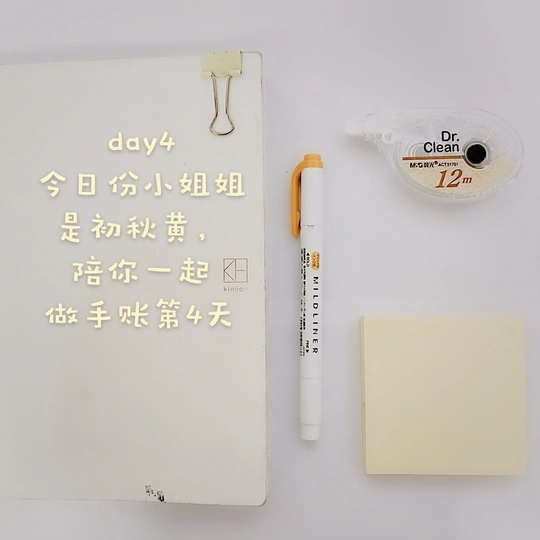 day4
今日份小姐姐
是初秋黄，
陪你一起
做手账第4天
kinbor
MILDLINER
Dr.
Clean
M&G晨光® ACT51701
12m